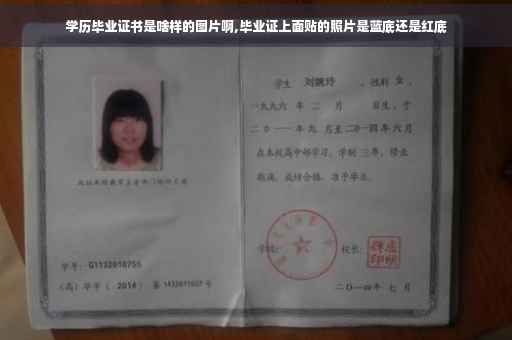 学历毕业证书是啥样的图片啊,毕业证上面贴的照片是蓝底还是红底
学号：G1132010755
(高) 毕字 ( 2014 ) 第 1432011027 号
学生 刘婉玲 ，性别 女 ，
一九九六 年 二 月 日生，于
二〇一一年 九 月至二〇一四年 六 月
在本校高中部学习，学制 三年，修业
期满，成绩合格，准予毕业。
学校： 校长：
二〇一四年 七 月